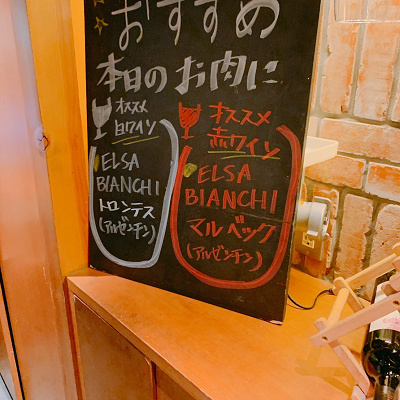 おすすめ
本日のお肉に
オススメ
白ワイン
ELSA
BIANCHI
トロンテス
(アルゼンチン)
オススメ
赤ワイン
ELSA
BIANCHI
マルベック
(アルゼンチン)